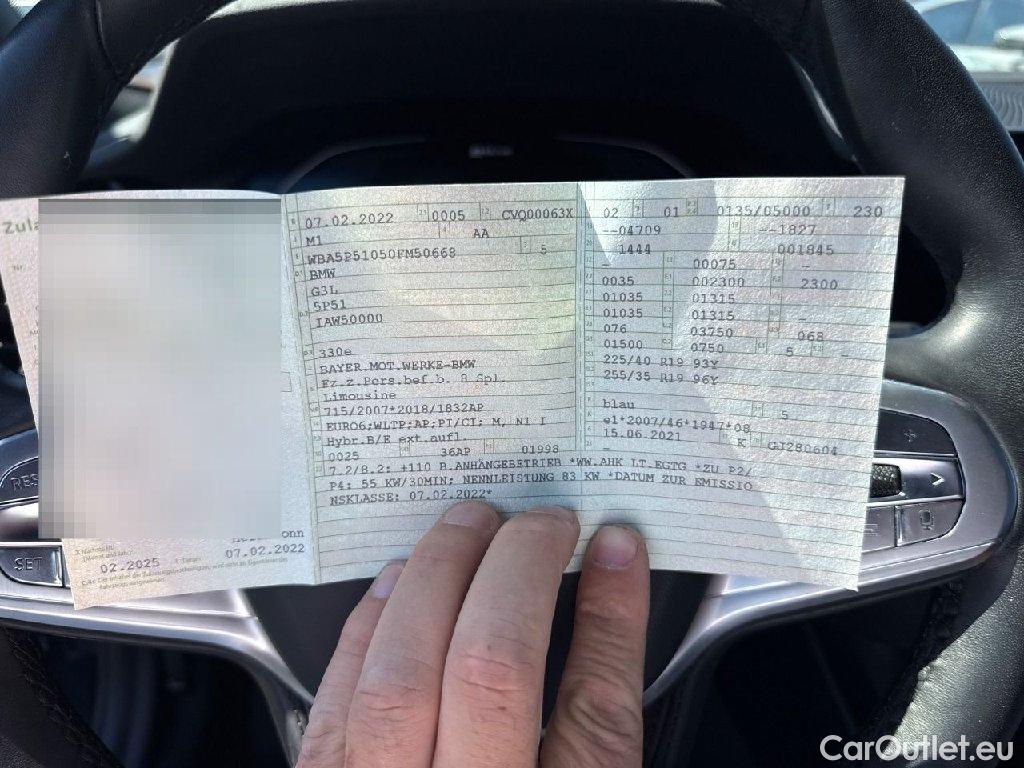 Zula
07.02.2022 0005 CVQ00063X
M1 AA
WBA5P51050FM50668 5
BMW
G3L
5P51
IAW50000
330e
BAYER.MOT.WERKE-BMW
Fz.z.Pers.bef.b. 8 Spl.
Limousine
715/2007*2018/1832AP
EURO6;WLTP;AP;PI/CI; M, N1 I
Hybr.B/E ext.aufl.
0025 36AP 01998 -
7.2/8.2: +110 B.ANHÄNGEBETRIEB *WW.AHK LT.EGTG *ZU P2/
P4: 55 KW/30MIN; NENNLEISTUNG 83 KW *DATUM ZUR EMISSIO
NSKLASSE: 07.02.2022*
02 01 0135/05000 230
--04709 --1827
- 1444 001845
- 00075 -
0035 002300 2300
01035 01315 -
01035 01315 -
076 03750 068
01500 0750 5 -
225/40 R19 93Y
255/35 R19 96Y
blau 5
e1*2007/46*1947*08
15.06.2021 K GJ280604
onn
02.2025 07.02.2022
RES
SET
CarOutlet.eu